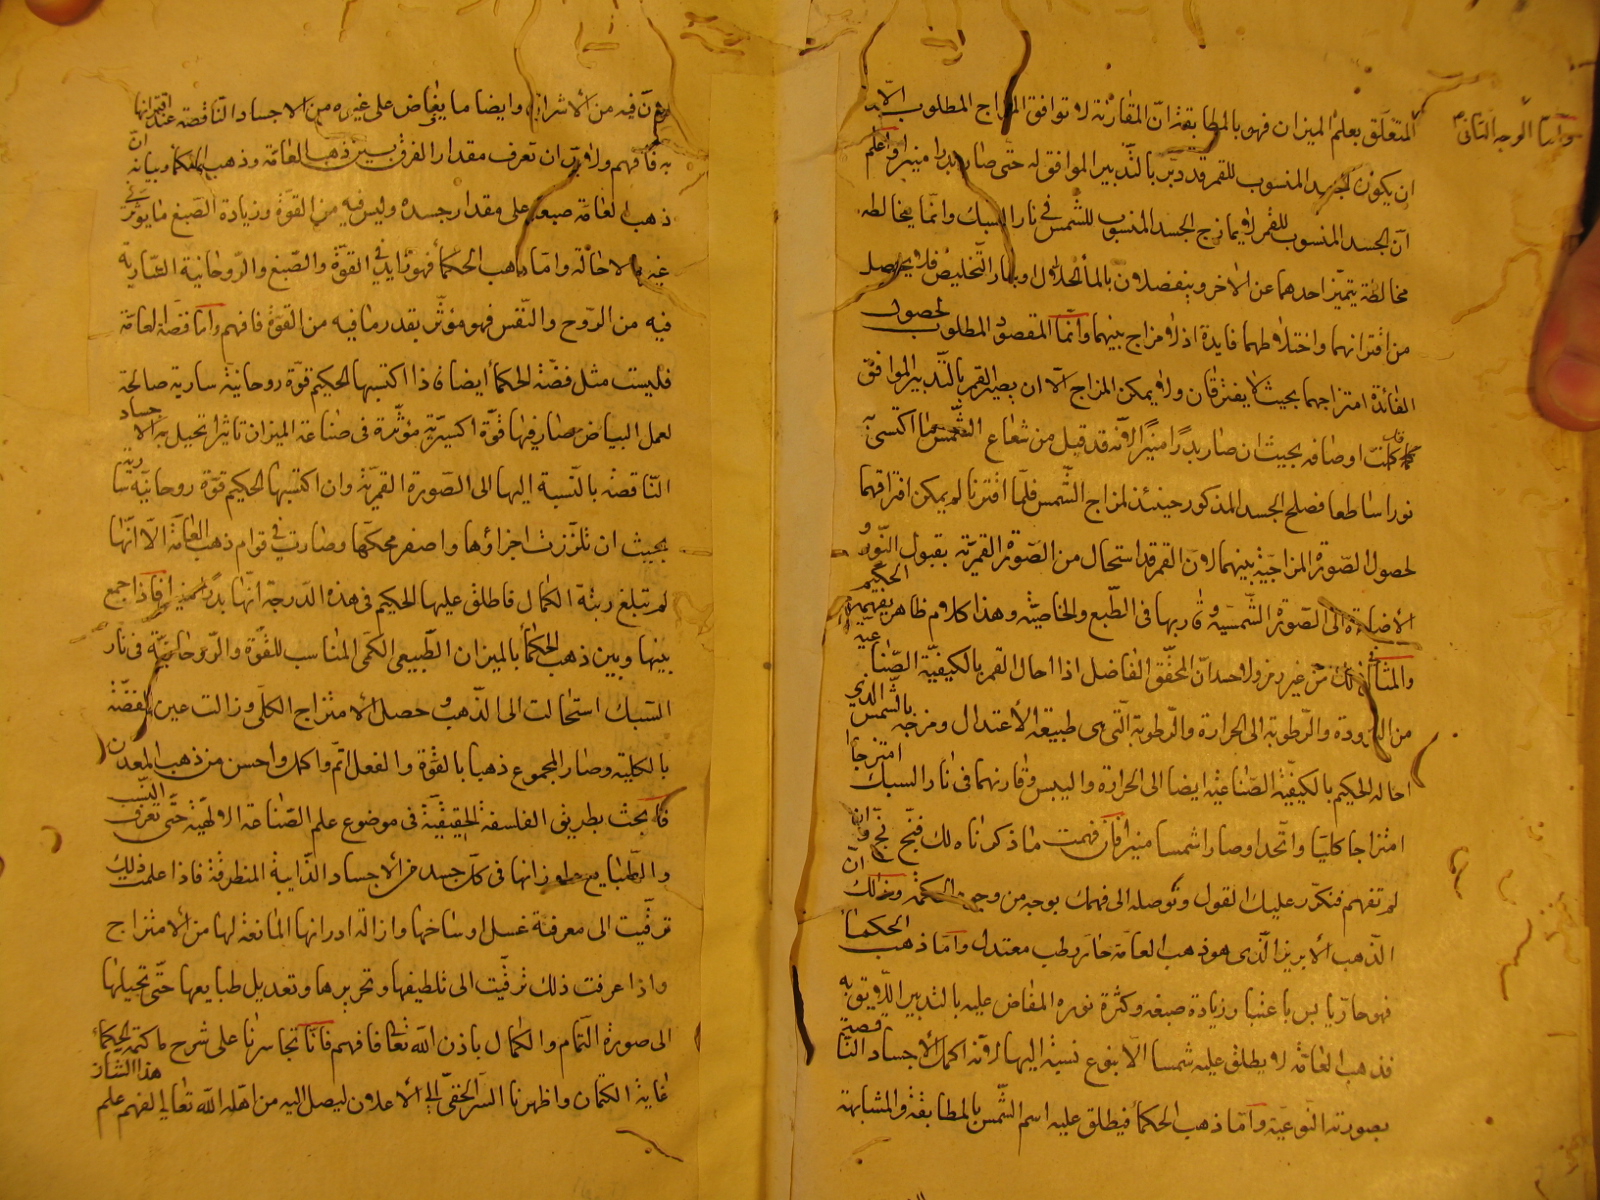 وأما الوجه الثاني
المتعلق بعلم الميزان فهو بالمطابقة فان المقارنة لا توافق المزاج المطلوب الا
ان يكون الجسد المنسوب للقمر قد دبّر بالتدبير الموافق له حتى صار بدرا منيرا واعلم
ان الجسد المنسوب للقمر لا يمازج الجسد المنسوب للشمس في نار السبك وانما يخالطه
مخالطة يتميز احدهما عن الاخر وينفصلان بالماء الحلال او بنار التخليص فلا يحصل
من اقترانهما واختلاطهما فايدة اذ لا مزاج بينهما وانما المقصود المطلوب لحصول
الفائدة امتزاجهما بحيث لا يفترقان ولا يمكن المزاج الا ان يصير القمر بالتدبير الموافق
كملت اوصافه بحيث ان صار بدرا منيرا لانه قد قبل من شعاع الشمس ما اكتسى به
نورا ساطعا فصلح الجسد المذكور حينئذ لمزاج الشمس فلما اقترنا لم يمكن افتراقهما
لحصول الصورة المزاجية بينهما لان القمر قد استحال من الصورة القمرية بقبول النور و
الاضاءة الى الصورة الشمسية وقاربها في الطبع والخاصية وهذا كلام ظاهر يفهمه الحكيم
والمثال في ذلك من غير رمز ولا حسد ان المحقق الفاضل اذا احال القمر بالكيفية الصناعية
من البرودة والرطوبة الى الحرارة والرطوبة التي هي طبيعة الاعتدال ومزجه بالشمس الذي
احاله الحكيم بالكيفية الصناعية ايضا الى الحرارة واليبس وقارنهما في نار السبك امتزجا
امتزاجا كليا واتحدا وصارا شمسا منيرا فان فهمت ما ذكرناه لك فبخ بخ وان
لم تفهم فنكرر عليك القول ونوصله الى فهمك بوجه من وجوه الحكمة وذلك ان
الذهب الابريز الذي هو ذهب العامة حار رطب معتدل واما ذهب الحكما
فهو حار يابس باعتبار زيادة صبغه وكثرة نوره المفاض عليه بالتدبير اللايق به
فذهب العامة لا يطلق عليه شمسا الا بنوع نسبة اليها لانه اكمل الاجساد الناقصة
بصورته النوعية واما ذهب الحكما فيطلق عليه اسم الشمس بالمطابقة والمشابهة
فيه من الاشراق وايضا ما يفاض على غيره من الاجساد الناقصة عند اقترانها
به فافهم ولا بد ان تعرف مقدار الفرق بين ذهب العامة وذهب الحكما وبيانه ان
ذهب العامة صبغه على مقدار جسده وليس فيه من القوة وزيادة الصبغ ما يؤثر في
غيره بالاحالة واما ذهب الحكما فهو زايد في القوة والصبغ والروحانية السارية
فيه من الروح والنفس فهو مؤثر بقدر ما فيه من القوة فافهم واما فضة العامة
فليست مثل فضة الحكما ايضا فاذا اكتسبها الحكيم قوة روحانية سارية صالحة
لعمل البياض صار فيها قوة اكسيرية مؤثرة في صناعة الميزان تاثيرا تحيل به الاجساد
الناقصة بالنسبة اليها الى الصورة القمرية وان اكتسبها الحكيم قوة روحانية سارية
بحيث ان تلززت اجزاؤها واصفر محكها وصارت في قوام ذهب العامة الا انها
لم تبلغ رتبة الكمال فاطلق عليها الحكيم في هذه الدرجة انها بدرا منيرا فاذا جمع
بينها وبين ذهب الحكما بالميزان الطبيعى الكمى المناسب للقوة والروحانية في نار
السبك استحالت الى الذهب وحصل الامتزاج الكلى وزالت عين الفضة
بالكلية وصار المجموع ذهبا بالقوة والفعل اتم واكمل واحسن من ذهب المعدن
فابحث بطريق الفلسفة الحقيقية في موضوع علم الصناعة الالهية حتى تعرف النسب
والطبايع واوزانها في كل جسد من الاجساد الذايبة المنطرقة فاذا علمت ذلك
ترقيت الى معرفة غسل اوساخها وازالة ادرانها المانعة لها من الامتزاج
واذا عرفت ذلك ترقيت الى تلطيفها وتحريرها وتعديل طبايعها حتى تحيلها
الى صورة التمام والكمال باذن الله تعالى فافهم فاننا تجاسرنا على شرح ما كتمه الحكما
غاية الكتمان واظهرنا السر الخفى الى الاعلان ليصل اليه من اهله الله تعالى لفهم علم هذا الشان